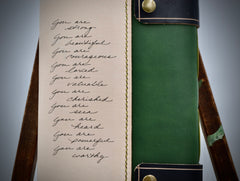 You are
strong
You are
beautiful
You are
courageous
You are
loved
You are
valuable
You are
cherished
You are
seen
You are
heard
You are
powerful
You are
worthy